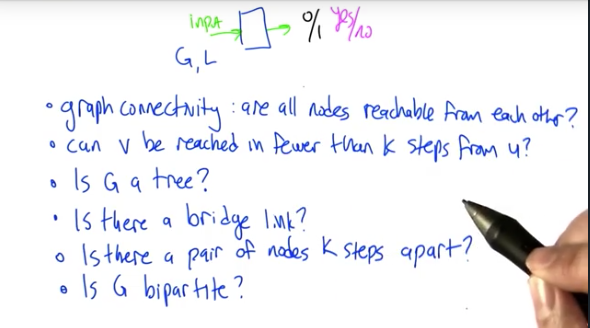 input
0/1 yes/no
G, L
• graph connectivity : are all nodes reachable from each other?
• can v be reached in fewer than k steps from u?
• Is G a tree?
• Is there a bridge link?
• Is there a pair of nodes k steps apart?
• Is G bipartite?